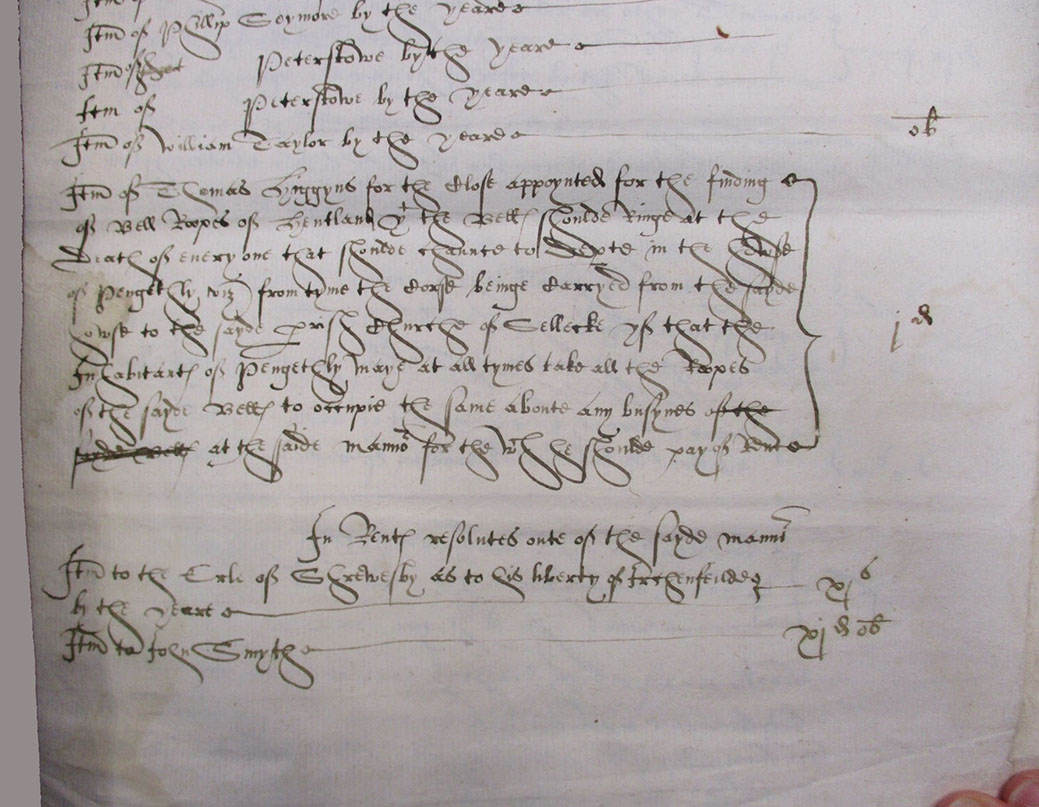 Itm of Phillip Seymore by the yeare
Itm of Peterstowe by the yeare
Itm of Peterstowe by the yeare
Itm of William Taylor by the yeare ob
Itm of Thomas Hynggyns for the Close appoynted for the finding
of Bell Roopes of Hentland yt the Bells shoulde Ringe at the
Death of every one that shoulde chaunce to in the howse
of Pengethly viz from tyme the Corse beinge Carryed from the sayde
howse to the sayde prish Churche of Sellecke yf that the jd
Inhabitants of Pengethly maye at all tymes take all the Roopes
of the sayde Bells to occupie the same aboute any busynes of the
sayde Bells at the saide mannor for the wch he shoulde pay of Rent
In Rents resolutes oute of the sayde mannor
Itm to the Erle of Shrewesby as to his liberty of Irchenfeilde xjs
by the yeare
Itm to John Smythe xjd ob